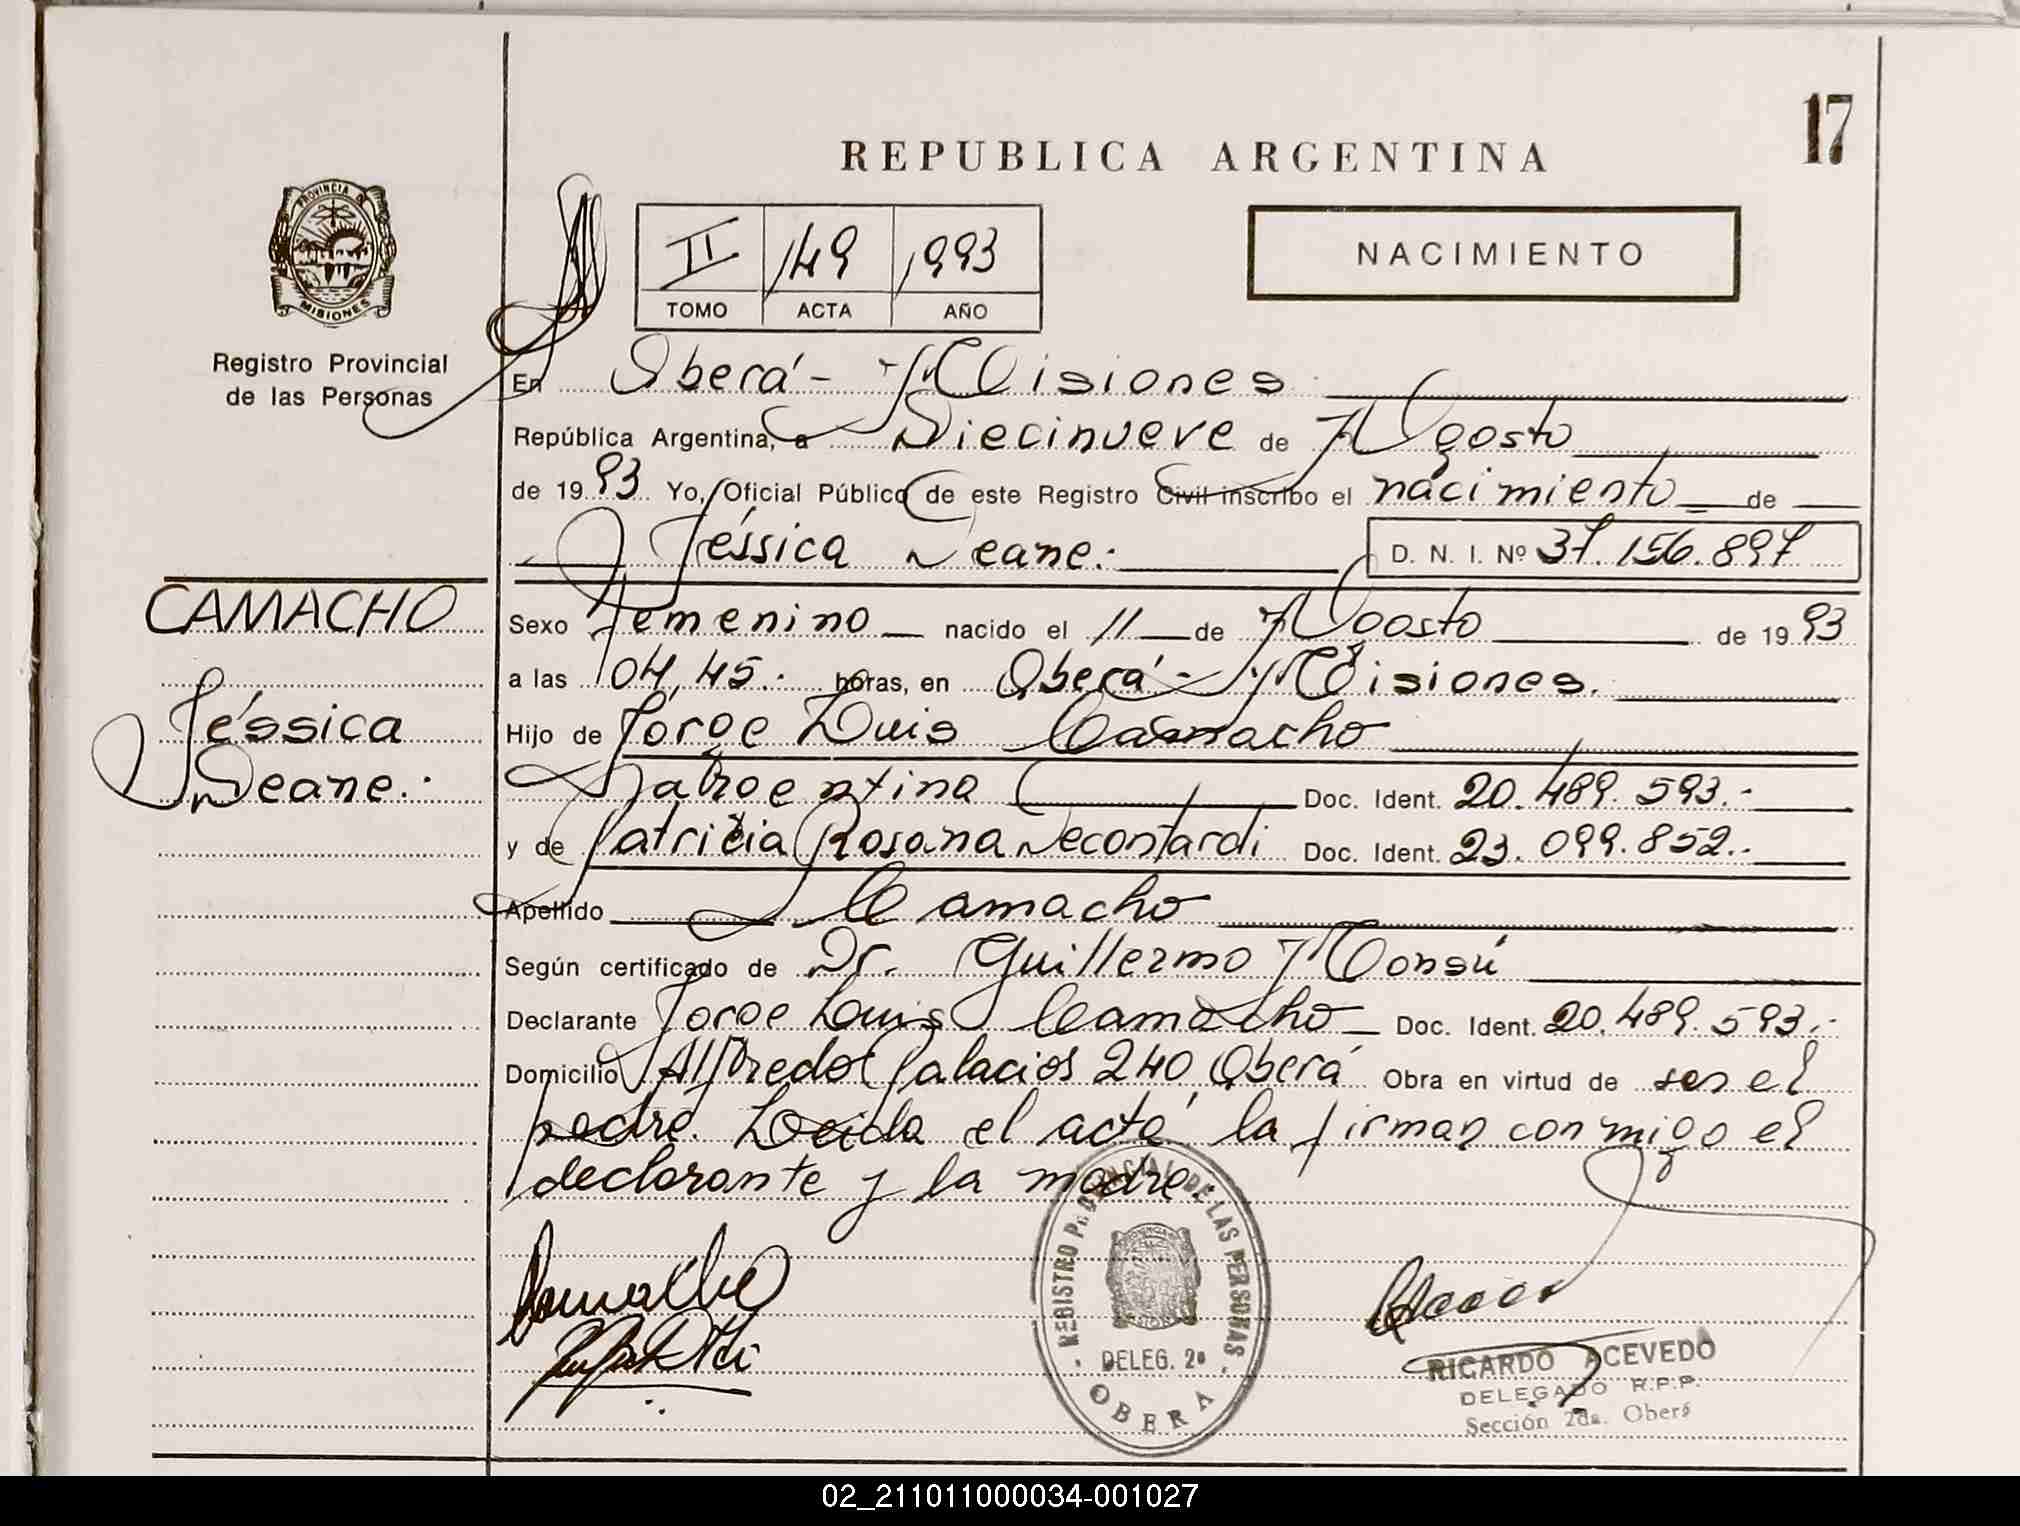 17
REPUBLICA ARGENTINA
PROVINCIA DE
MISIONES
II 149 1993
TOMO ACTA AÑO
NACIMIENTO
Registro Provincial
de las Personas
En Oberá - Misiones
República Argentina, a Diecinueve de Agosto
de 1993 Yo, Oficial Público de este Registro Civil inscribo el nacimiento de
Jéssica Deane.
D. N. I. Nº 37.156.897
CAMACHO
Jéssica
Deane.
Sexo Femenino nacido el 11 de Agosto de 1993
a las 04,45.- horas, en Oberá - Misiones.
Hijo de Jorge Luis Camacho
Argentina Doc. Ident. 20.489.593.-
y de Patricia Rosana Decontardi Doc. Ident. 23.099.852.-
Apellido Camacho
Según certificado de Dr. Guillermo Monsú
Declarante Jorge Luis Camacho Doc. Ident. 20.489.593.-
Domicilio Alfredo Palacios 240 Oberá Obra en virtud de ser el
padre. Leída el acta, la firman conmigo el
declarante y la madre.
REGISTRO PROVINCIAL DE LAS PERSONAS
DELEG. 2ª
OBERA
RICARDO ACEVEDO
DELEGADO R.P.P.
Sección 2da. Oberá
02_211011000034-001027